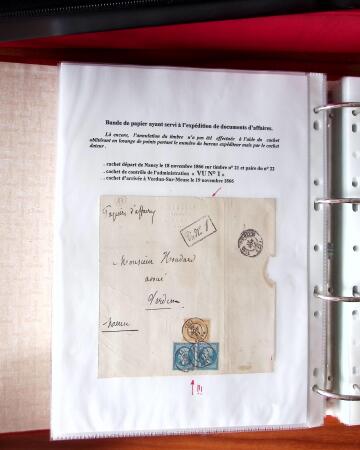 Bande de papier ayant servi à l'expédition de documents d'affaires.
Là encore, l'annulation du timbre n'a pas été effectuée à l'aide du cachet
oblitérant en losange de points portant le numéro du bureau expéditeur mais par le cachet
dateur.
- cachet départ de Nancy le 18 novembre 1866 sur timbre n° 21 et paire du n° 22
- cachet de contrôle de l'administration « VU N° 1 »
- cachet d'arrivée à Verdun-Sur-Meuse le 19 novembre 1866
Papiers d'affaires
Vu N° 1
Monsieur Houdard
avoué
Verdun